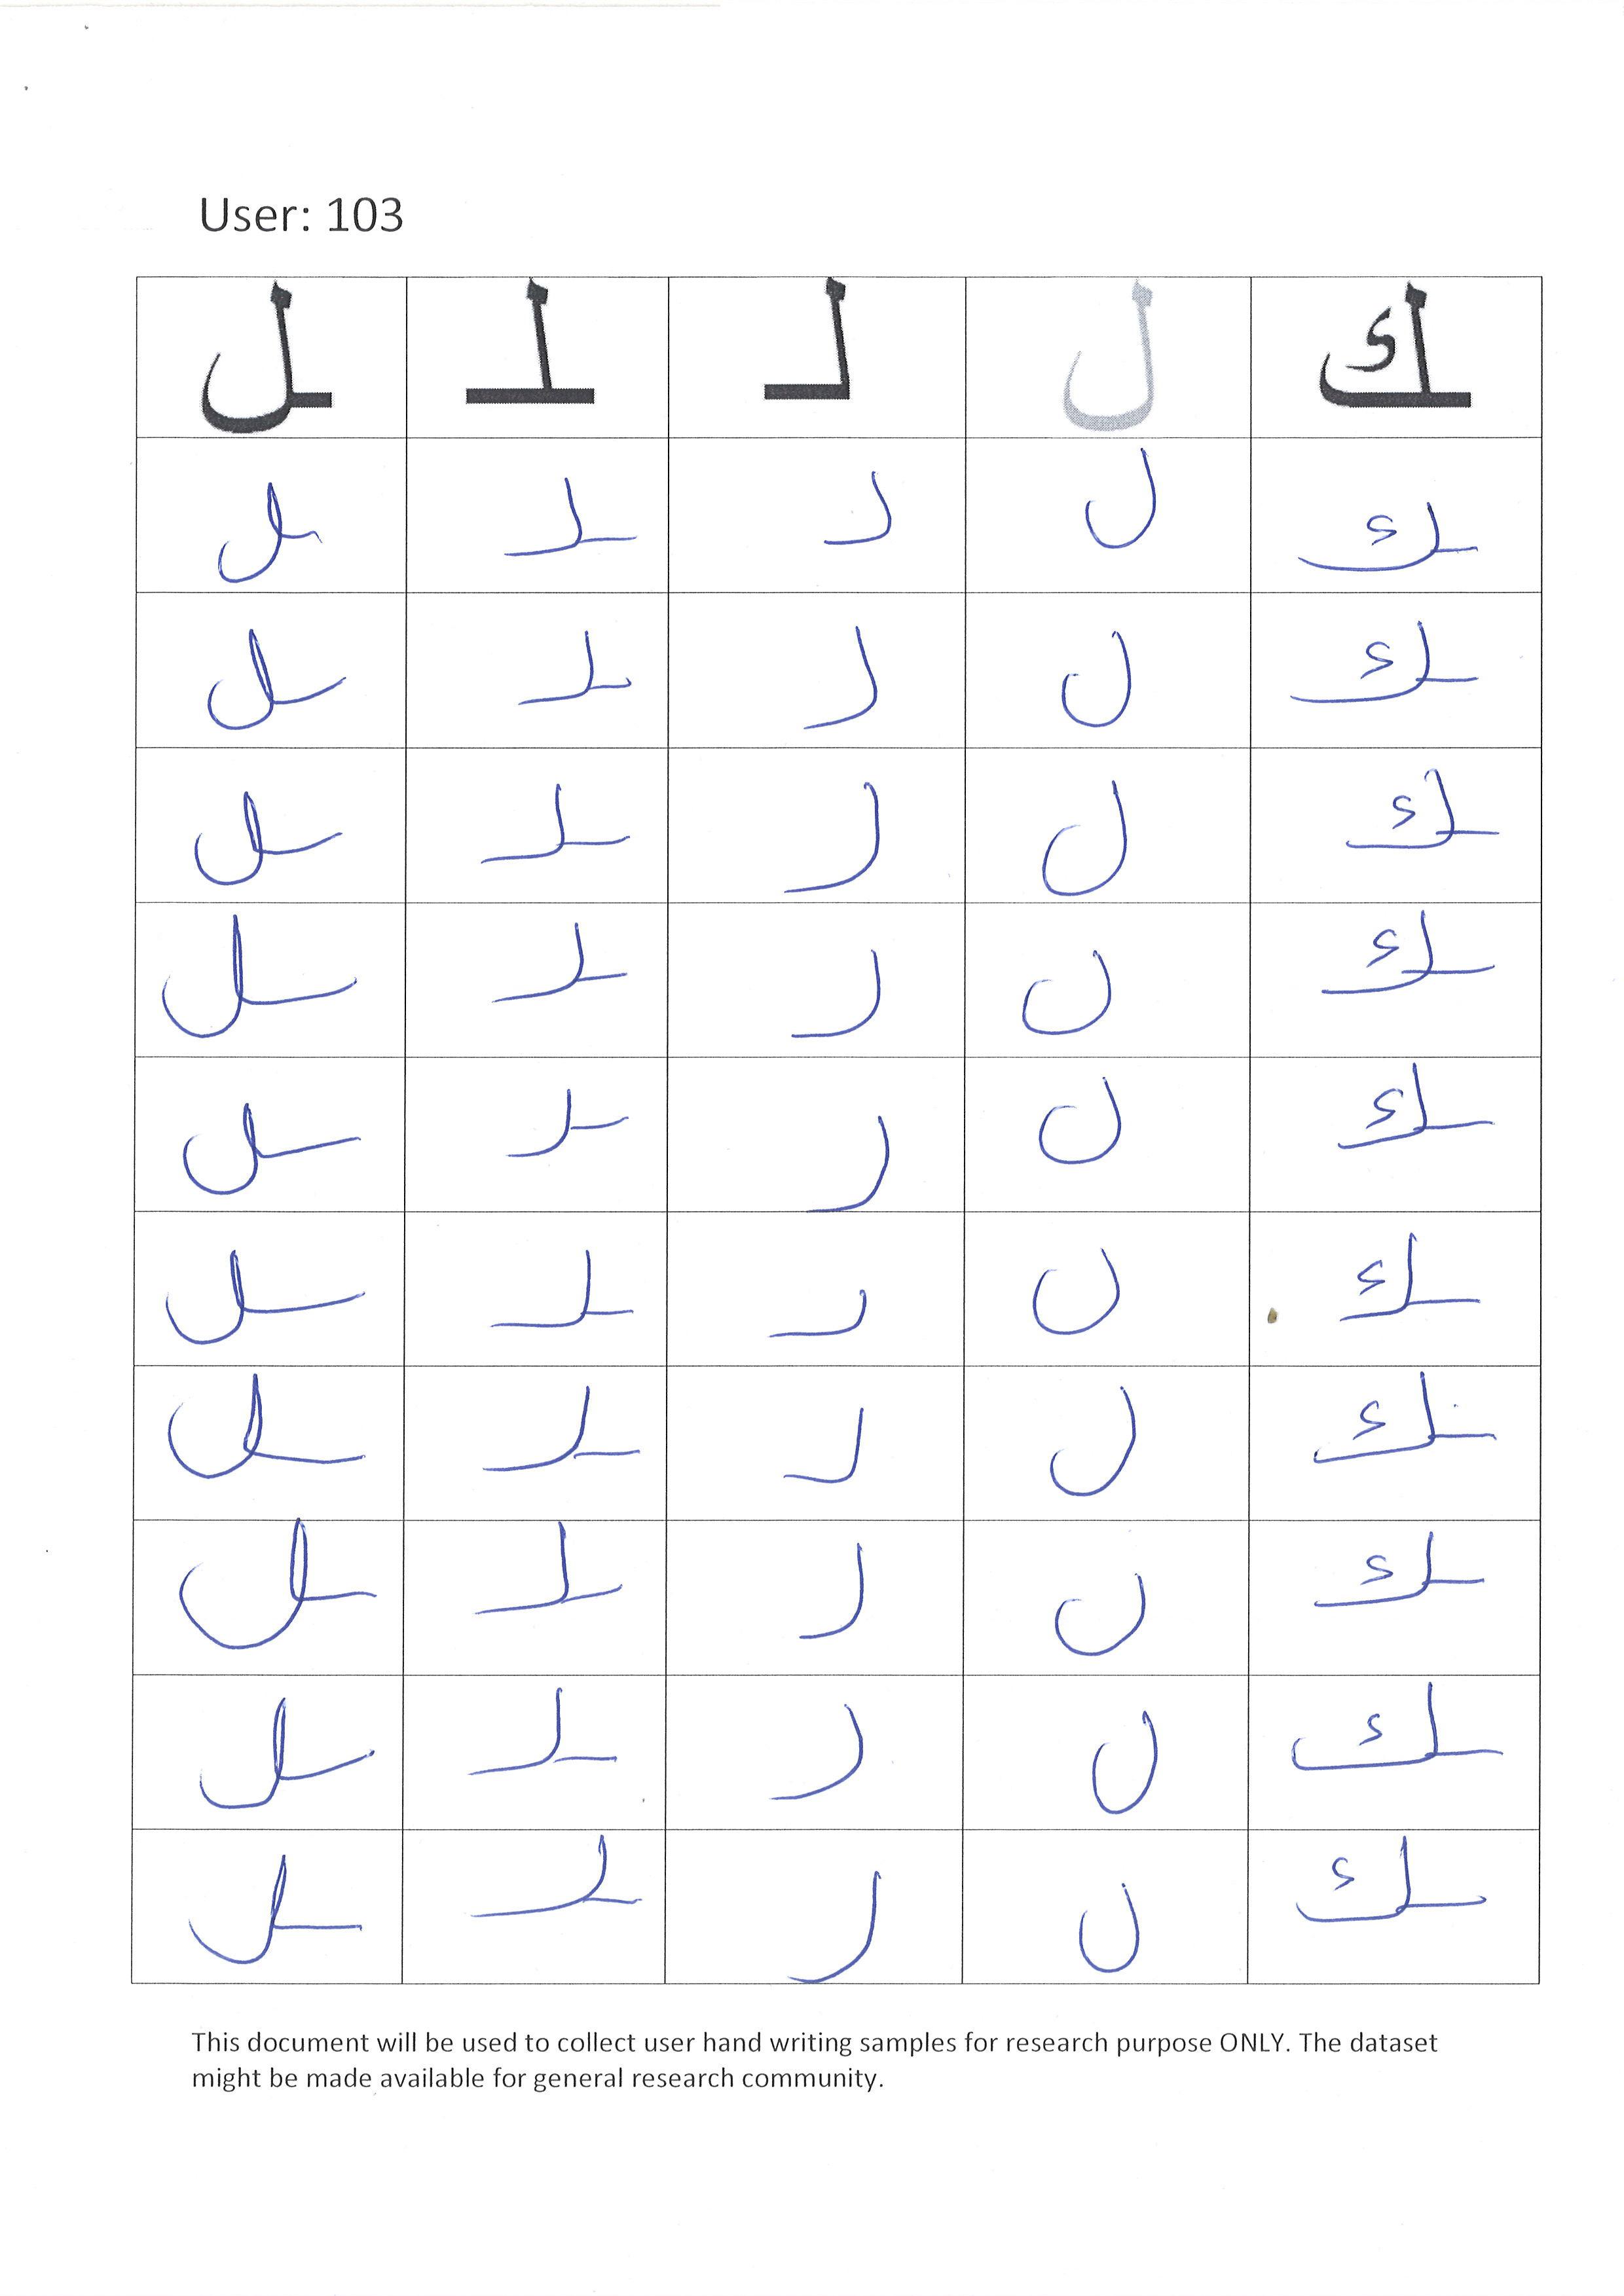 User: 103
ـك ل لـ ـلـ ـل
ـك ل لـ ـلـ ـل
ـك ل لـ ـلـ ـل
ـك ل لـ ـلـ ـل
ـك ل لـ ـلـ ـل
ـك ل لـ ـلـ ـل
ـك ل لـ ـلـ ـل
ـك ل لـ ـلـ ـل
ـك ل لـ ـلـ ـل
ـك ل لـ ـلـ ـل
ـك ل لـ ـلـ ـل
This document will be used to collect user hand writing samples for research purpose ONLY. The dataset
might be made available for general research community.